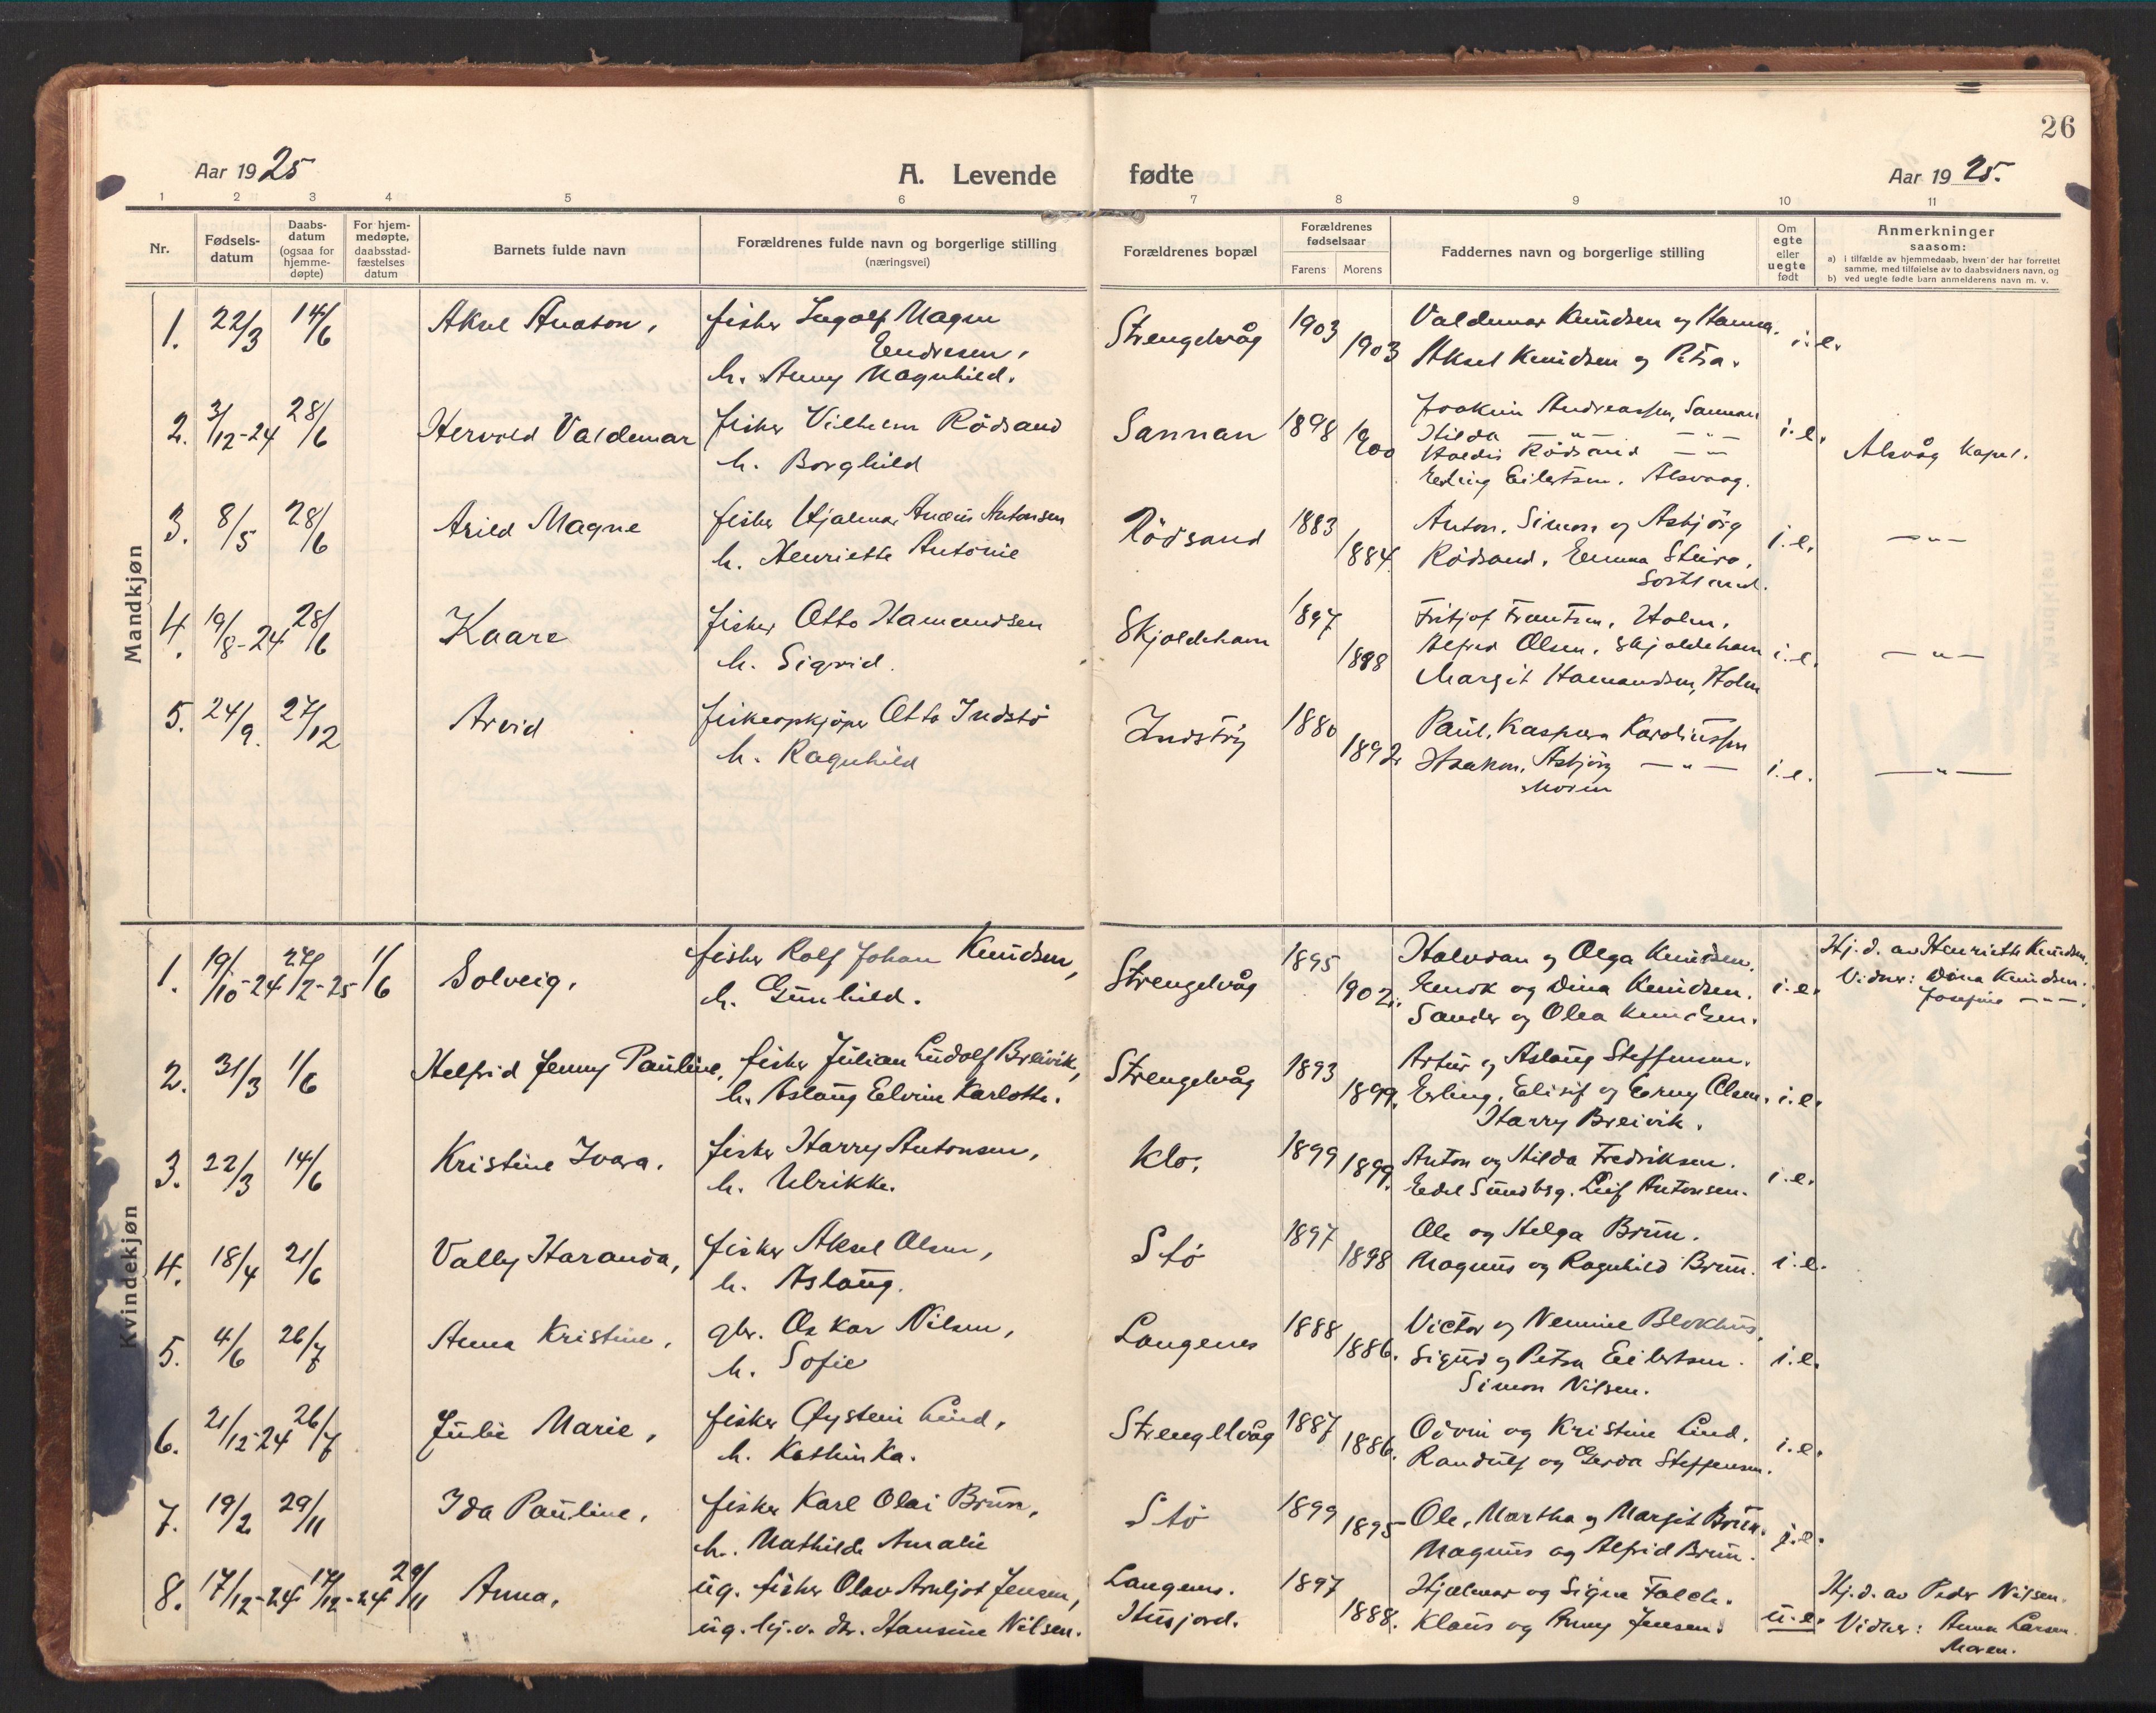 26
Aar 1925
A. Levende fødte
Aar 1925.
1 2 3 4 5 6 7 8 9 10 11
Nr.
Fødsels-
datum
Daabs-
datum
(ogsaa for
hjemme-
døpte)
For hjem-
medøpte,
daabsstad-
fæstelses
datum
Barnets fulde navn
Forældrenes fulde navn og borgerlige stilling
(næringsvei)
Forældrenes bopæl
Forældrenes
fødselsaar
Farens Morens
Faddernes navn og borgerlige stilling
Om
egte
eller
uegte
født
Anmerkninger
saasom:
a) i tilfælde av hjemmedaab, hvem der har forrettet
samme, med tilføielse av to daabsvidners navn, og
b) ved uegte fødte barn anmelderens navn m. v.
Mandkjøn
1. 22/3 14/6 Aksel Anaton, fisker Ingolf Magn Strengelvåg 1903 Valdemar Knudsen og Hanna. i.e.
Endresen, 1903 Aksel Knudsen og Petra.
h. Anny Magnhild.
2. 3/12-24 28/6 Hervald Valdemar fisker Vilhelm Rödsand Sannan 1898 Joakim Andreassen, Sannan i.e. Alsvåg kapel.
h. Borghild 1900 Hilda —"— —"—
Haldis Rödsand —"—
Erling Eilertsen. Alsvaag.
3. 8/5 28/6 Arild Magne fisker Hjalmar Antonsen Rödsand 1883 Anton, Simon og Asbjörg i.e. —"—
h. Henriette Antonie 1884 Rödsand, Emma Steiro,
Sortland.
4. 19/8-24 28/6 Kaare fisker Otto Hamandsen Skjoldehamn 1897 Fritjof Frantsen, Holm,
h. Sigrid. 1898 Alfred Olsen, Skjoldehamn i.e. —"—
Margit Hamandsen, Holm
5. 24/9. 27/12 Arvid fiskeopkjöper Otto Indstö Indstöy 1880 Paul, Kaspara Karoliussen
h. Ragnhild 1892 Haakon, Asbjörg —"— i.e. —"—
Moren
Kvindekjøn
1. 19/10-24 27/2-25 1/6 Solveig, fisker Rolf Johan Knudsen, Strengelvåg 1895 Halvdan og Olga Knudsen. Hj.d. av Henriette Knudsen.
h. Gunhild. 1902. Enok og Dina Knudsen. i.e. Vidner: Dina Knudsen.
Sander og Olea Knudsen. Josefine —"—.
2. 31/3 1/6 Helfrid Jenny Pauline, fisker Julian Ludolf Breivik, Strengelvåg 1893 Artur og Aslaug Steffensen.
h. Aslaug Elvine Karlotte. 1899. Erling, Elisif og Erny Olsen. i.e.
Harry Breivik.
3. 22/3 14/6 Kristine Ivara. fisker Harry Antonsen, Klo. 1899 Anton og Hilda Fredriksen.
h. Ulrikke. 1899. Edel Sundbsg. Leif Antonsen. i.e.
4. 18/4 21/6 Vally Haranda, fisker Aksel Olsen, Stö 1897 Ole og Helga Brun.
h. Aslaug. 1898 Magnus og Ragnhild Brun. i.e.
5. 4/6 26/7 Anna Kristine, gbr. Oskar Nilsen, Langenes 1888 Victor og Nennie Blokhus.
h. Sofie 1886. Sigurd og Petra Eilertsen. i.e.
Simon Nilsen.
6. 21/12-24 26/7 Julie Marie, fisker Øystein Lind, Strengelvåg 1887 Odvin og Kristine Lind. i.e.
h. Kathinka. 1886. Randulf og Gerda Steffensen.
7. 19/2 29/11 Ida Pauline, fisker Karl Olai Brun, Stö 1899 Ole, Martha og Margit Brun.
h. Mathilde Amalie 1895 Magnus og Alfrid Brun. i.e.
8. 17/12-24 17/12-24 29/11 Anna. ug. fisker Olav Arnljot Jensen, Langenes. 1897 Hjalmar og Signe Falch. Hj.d. av Peder Nilsen.
ug. hj.v. dtr. Hansine Nilsen. Husjord. 1888. Klaus og Anny Jensen. u.e. Vidner: Anna Larsen.
Moren.